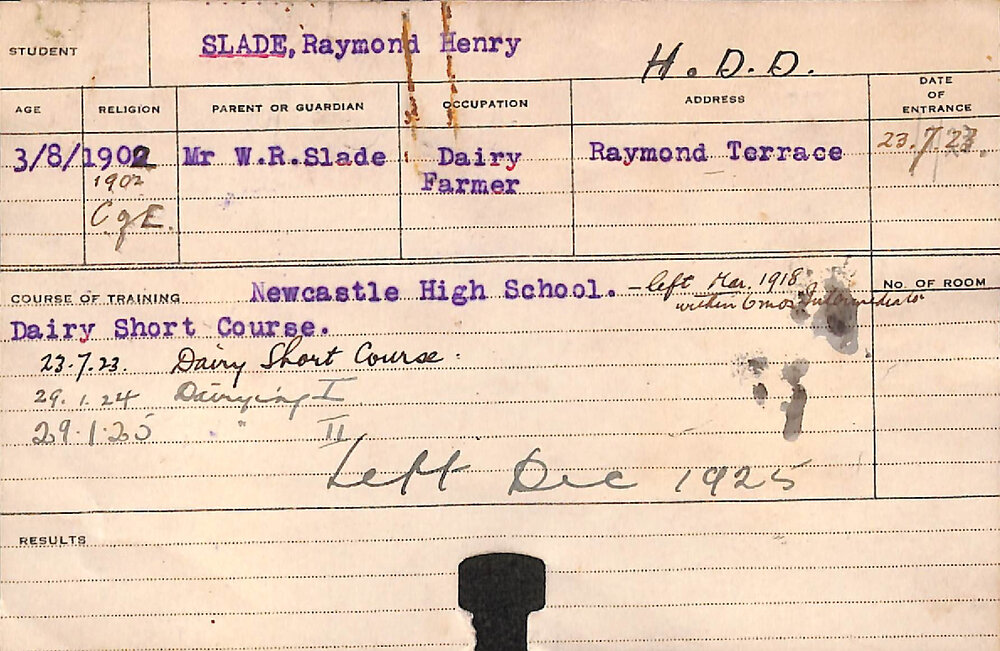 STUDENT SLADE, Raymond Henry
H. D. D.
AGE RELIGION PARENT OR GUARDIAN OCCUPATION ADDRESS DATE OF ENTRANCE
3/8/1902 Mr W.R.Slade Dairy Raymond Terrace 23.7.23.
1902 Farmer
C of E.
COURSE OF TRAINING Newcastle High School. – left Mar. 1918 No. OF ROOM
within 6mos Intermediate
Dairy Short Course.
23.7.23. Dairy Short Course.
29.1.24 Dairying I
29.1.25 " II
Left Dec 1925
RESULTS